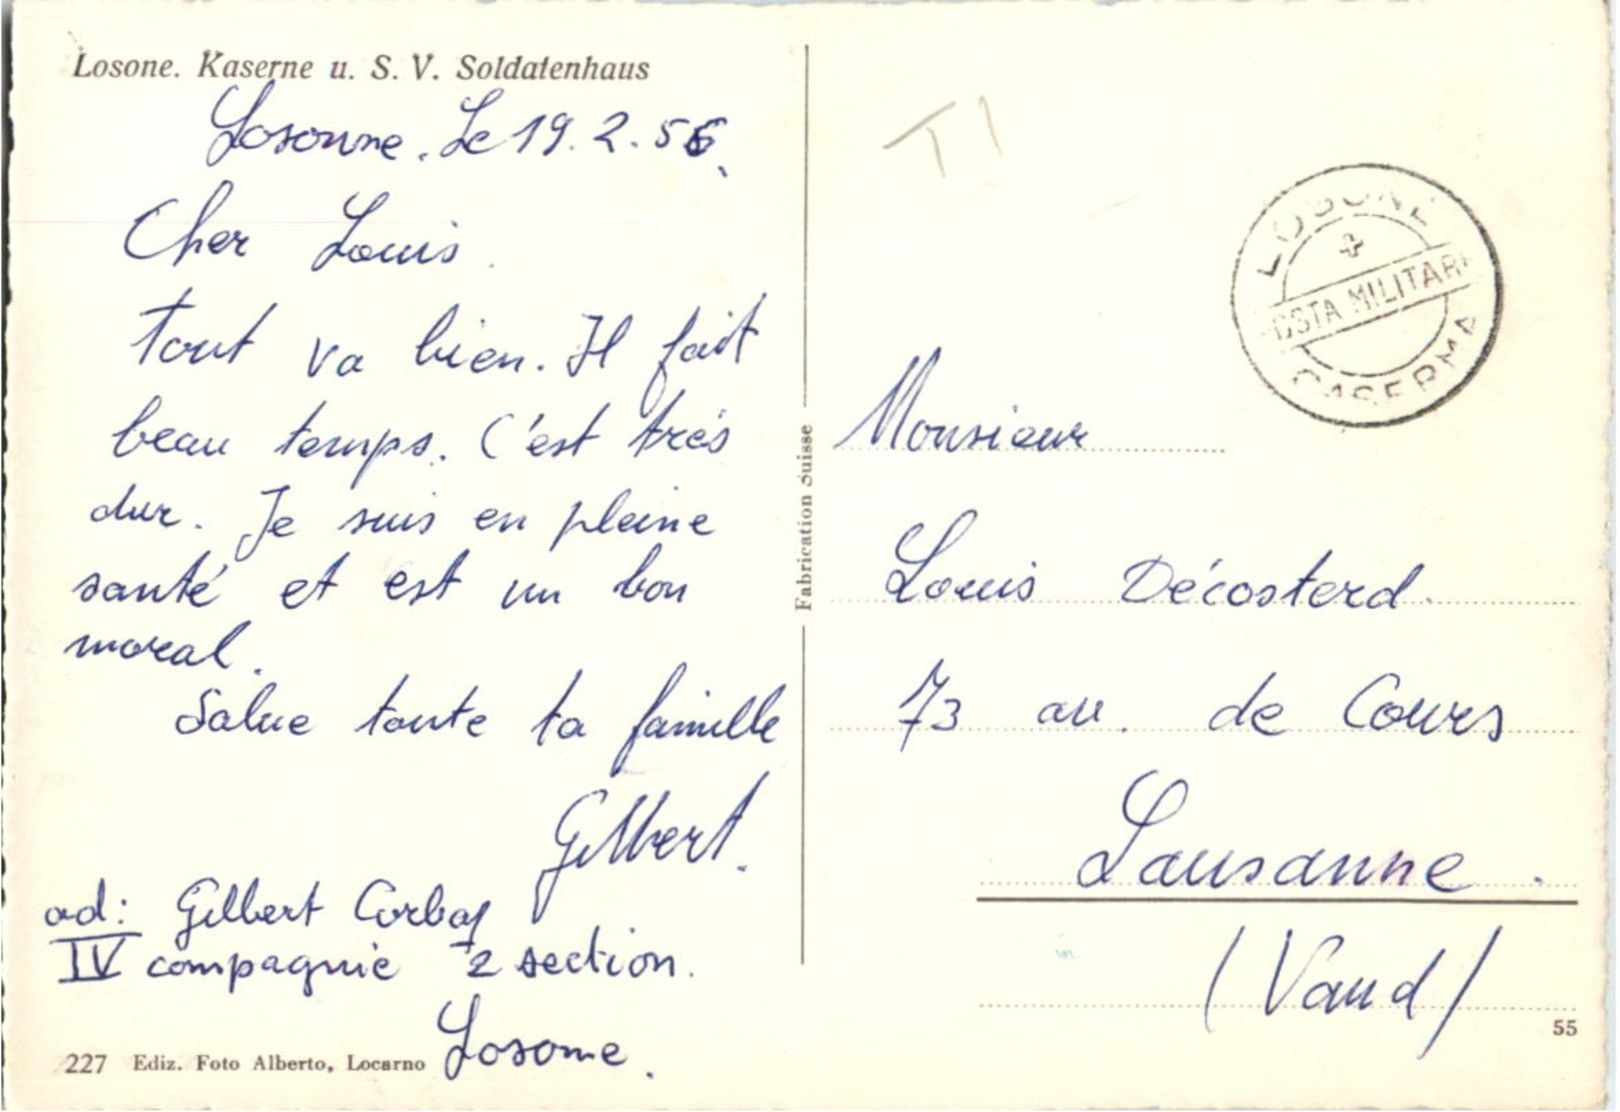 Losone. Kaserne u. S. V. Soldatenhaus
Losonne. Le 19. 2. 56.
Cher Louis.
Tout va bien. Il fait
beau temps. C'est très
dur. Je suis en pleine
santé et est un bon
moral.
Salue toute ta famille
Gilbert.
ad: Gilbert Corbaz
IV compagnie 2 section.
Losone.
227 Ediz. Foto Alberto, Locarno
Fabrication Suisse
T1
LOSONE
POSTA MILITARE
CASERMA
Monsieur
Louis Décosterd.
73 av. de Cours
Lausanne.
(Vaud)
55